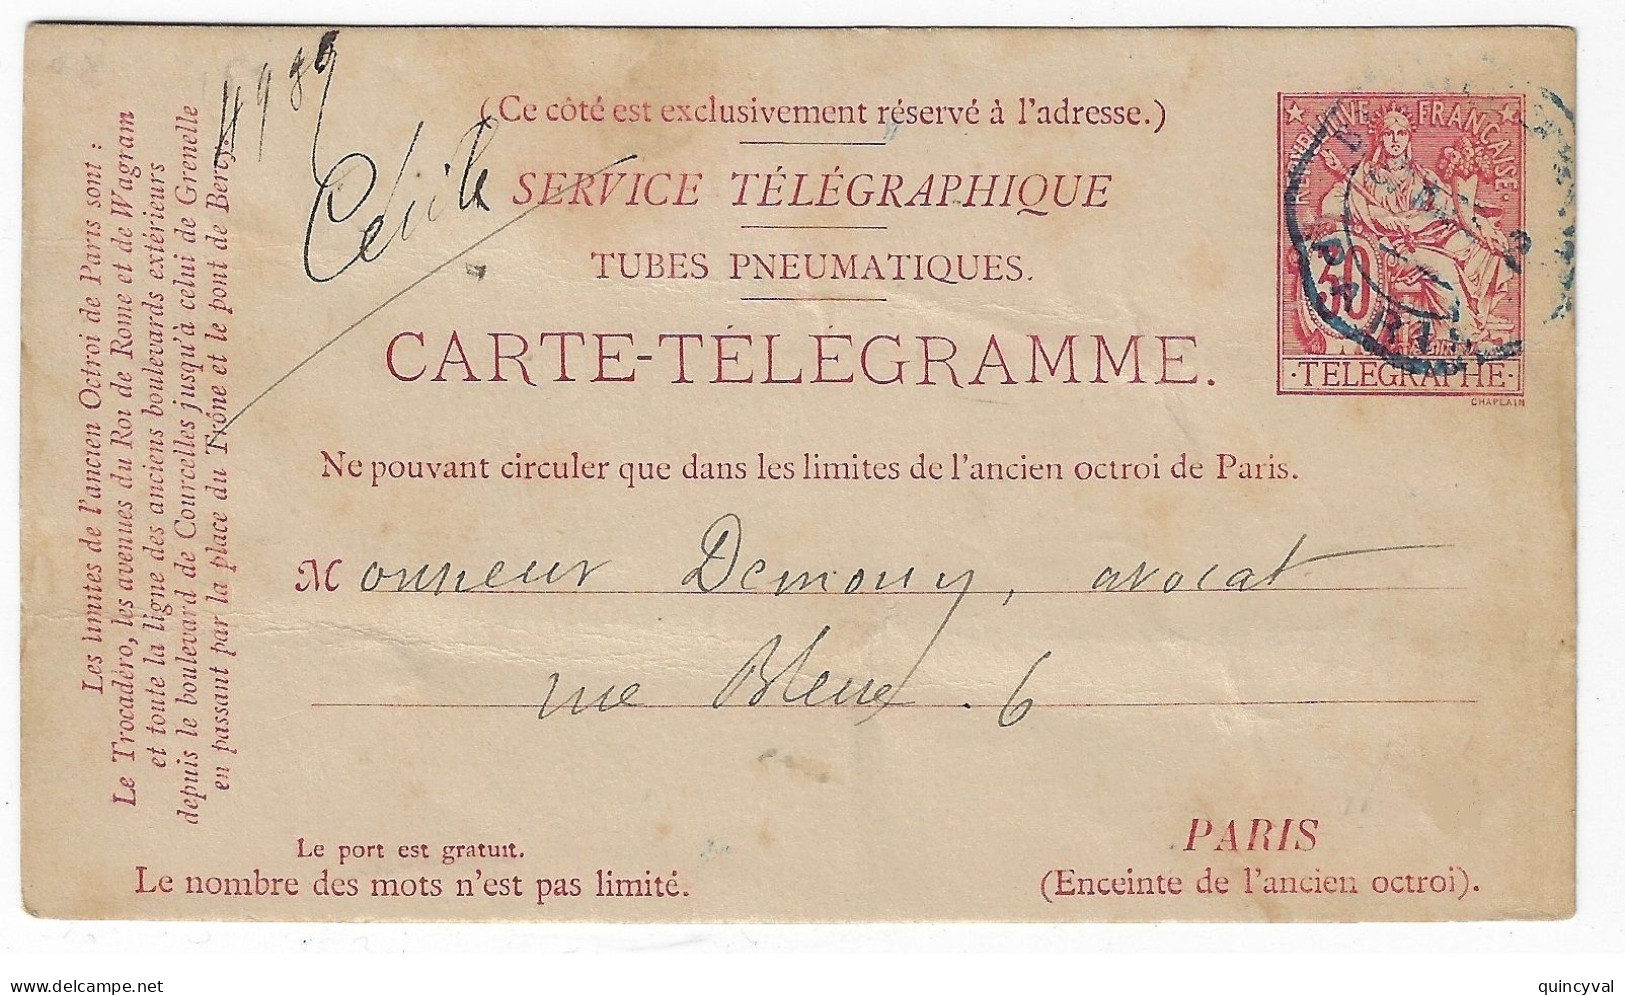 (Ce côté est exclusivement réservé à l'adresse.)
SERVICE TÉLÉGRAPHIQUE
TUBES PNEUMATIQUES.
CARTE-TÉLÉGRAMME.
Ne pouvant circuler que dans les limites de l'ancien octroi de Paris.
Monsieur Demouy, avocat
rue Bleue. 6
Le port est gratuit.
Le nombre des mots n'est pas limité.
PARIS
(Enceinte de l'ancien octroi).
Les limites de l'ancien Octroi de Paris sont :
Le Trocadéro, les avenues du Roi de Rome et de Wagram
et toute la ligne des anciens boulevards extérieurs
depuis le boulevard de Courcelles jusqu'à celui de Grenelle
en passant par la place du Trône et le pont de Bercy.
REPUBLIQUE FRANCAISE
30
TELEGRAPHE
CHAPLAIN
PARIS
delcampe.net
quincyval